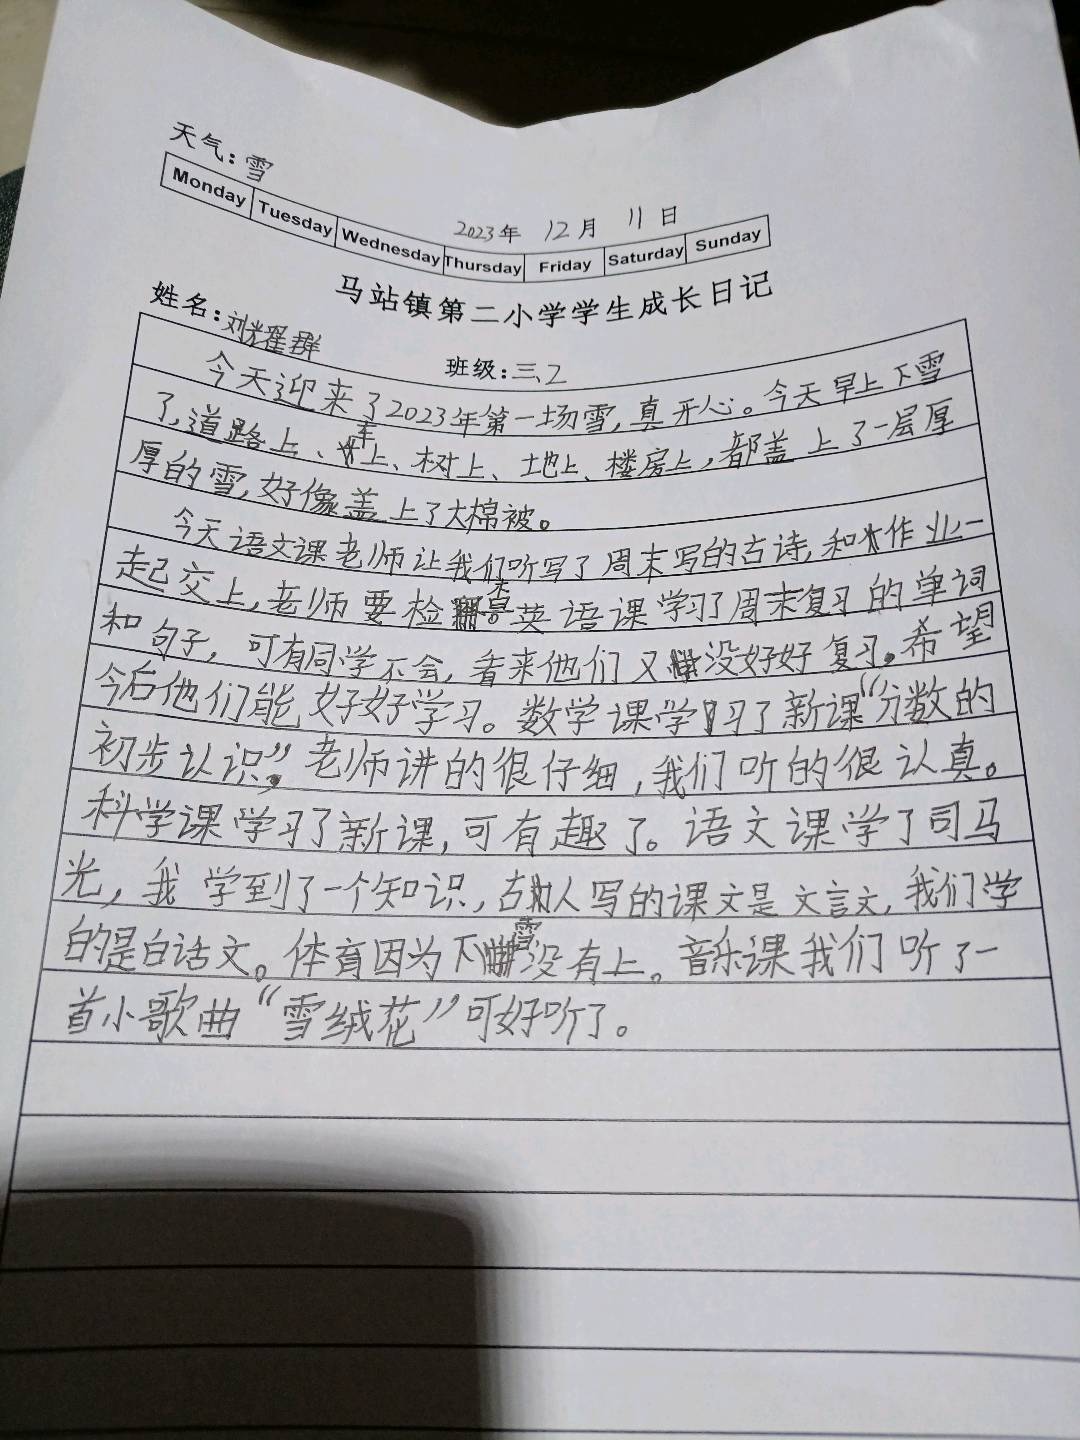 天气：雪
Monday Tuesday Wednesday Thursday Friday Saturday Sunday
2023年 12月 11日
马站镇第二小学学生成长日记
姓名：刘耀群 班级：三、2
今天迎来了2023年第一场雪，真开心。今天早上下雪
了，道路上、车上、树上、地上、楼房上，都盖上了一层厚
厚的雪，好像盖上了大棉被。
今天语文课老师让我们听写了周末写的古诗，和作业一
起交上，老师要检查。英语课学习了周末复习的单词
和句子，可有同学不会，看来他们又没好好复习。希望
今后他们能好好学习。数学课学习了新课“分数的
初步认识”，老师讲的很仔细，我们听的很认真。
科学课学习了新课，可有趣了。语文课学了司马
光，我学到了一个知识，古人写的课文是文言文，我们学
的是白话文。体育因为下雪没有上。音乐课我们听了一
首小歌曲“雪绒花”可好听了。